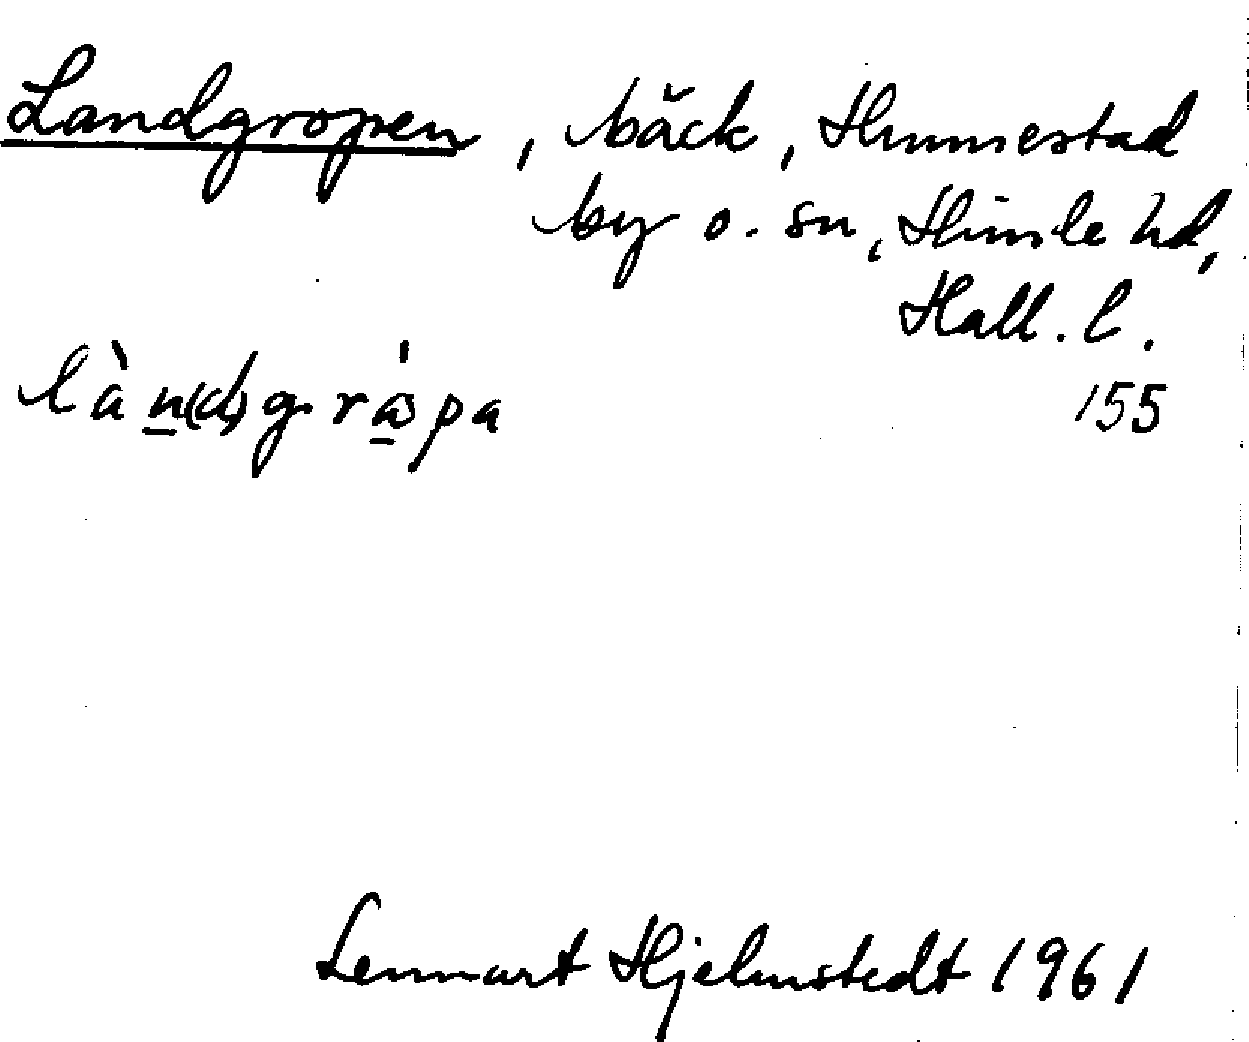 Landgropen, bäck, Hunnestad
by o. sn, Himle hd,
Hall. l.
làn(d)gråpa
155
Lennart Hjelmstedt 1961